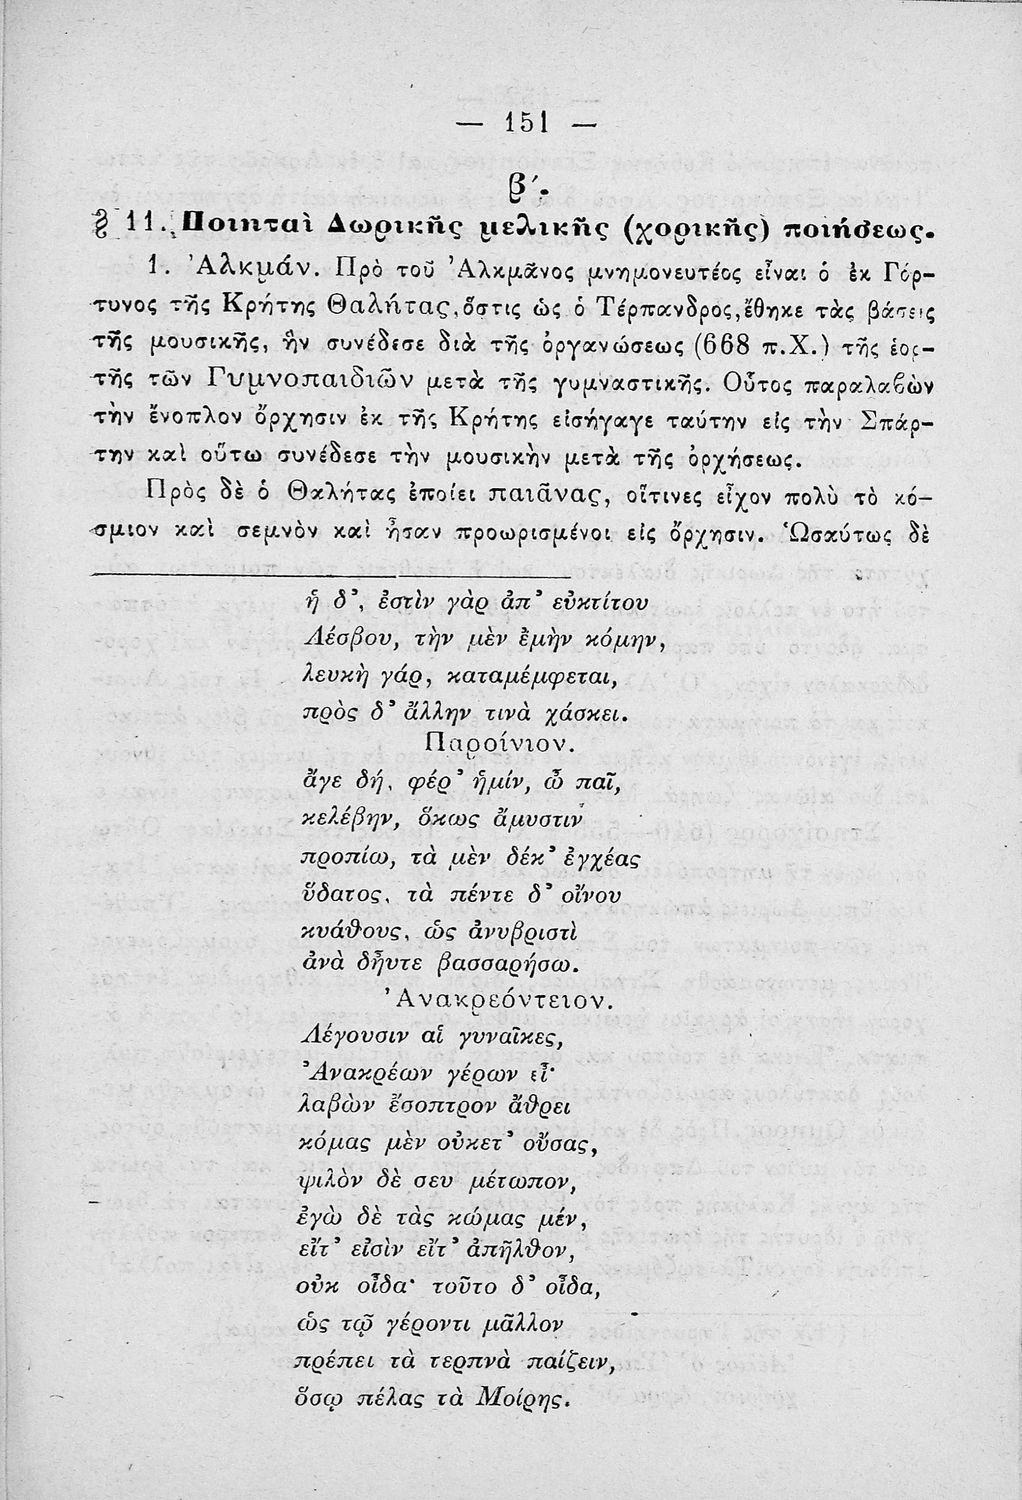 — 151 —
β΄.
§ 11. Ποιηταὶ Δωρικῆς μελικῆς (χορικῆς) ποιήσεως.
1. Ἀλκμάν. Πρὸ τοῦ Ἀλκμᾶνος μνημονευτέος εἶναι ὁ ἐκ Γόρ-
τυνος τῆς Κρήτης Θαλήτας, ὅστις ὡς ὁ Τέρπανδρος, ἔθηκε τὰς βάσεις
τῆς μουσικῆς, ἣν συνέδεσε διὰ τῆς ὀργανώσεως (668 π.Χ.) τῆς ἑορ-
τῆς τῶν Γυμνοπαιδιῶν μετὰ τῆς γυμναστικῆς. Οὗτος παραλαβὼν
τὴν ἔνοπλον ὄρχησιν ἐκ τῆς Κρήτης εἰσήγαγε ταύτην εἰς τὴν Σπάρ-
την καὶ οὕτω συνέδεσε τὴν μουσικὴν μετὰ τῆς ὀρχήσεως.
Πρὸς δὲ ὁ Θαλήτας ἐποίει παιᾶνας, οἵτινες εἶχον πολὺ τὸ κό-
σμιον καὶ σεμνὸν καὶ ἦσαν προωρισμένοι εἰς ὄρχησιν. Ὡσαύτως δὲ
ἡ δ', ἐστὶν γὰρ ἀπ' εὐκτίτου
Λέσβου, τὴν μὲν ἐμὴν κόμην,
λευκὴ γάρ, καταμέμφεται,
πρὸς δ' ἄλλην τινὰ χάσκει.
Παροίνιον.
ἄγε δή, φέρ' ἡμίν, ὦ παῖ,
κελέβην, ὅκως ἄμυστιν
προπίω, τὰ μὲν δέκ' ἐγχέας
ὕδατος, τὰ πέντε δ' οἴνου
κυάθους, ὡς ἀνυβριστὶ
ἀνὰ δηῦτε βασσαρήσω.
Ἀνακρεόντειον.
Λέγουσιν αἱ γυναῖκες,
Ἀνακρέων γέρων εἶ·
λαβὼν ἔσοπτρον ἄθρει
κόμας μὲν οὐκετ' οὔσας,
ψιλὸν δὲ σευ μέτωπον,
ἐγὼ δὲ τὰς κώμας μέν,
εἴτ' εἰσὶν εἴτ' ἀπῆλθον,
οὐκ οἶδα· τοῦτο δ' οἶδα,
ὡς τῷ γέροντι μᾶλλον
πρέπει τὰ τερπνὰ παίζειν,
ὅσῳ πέλας τὰ Μοίρης.